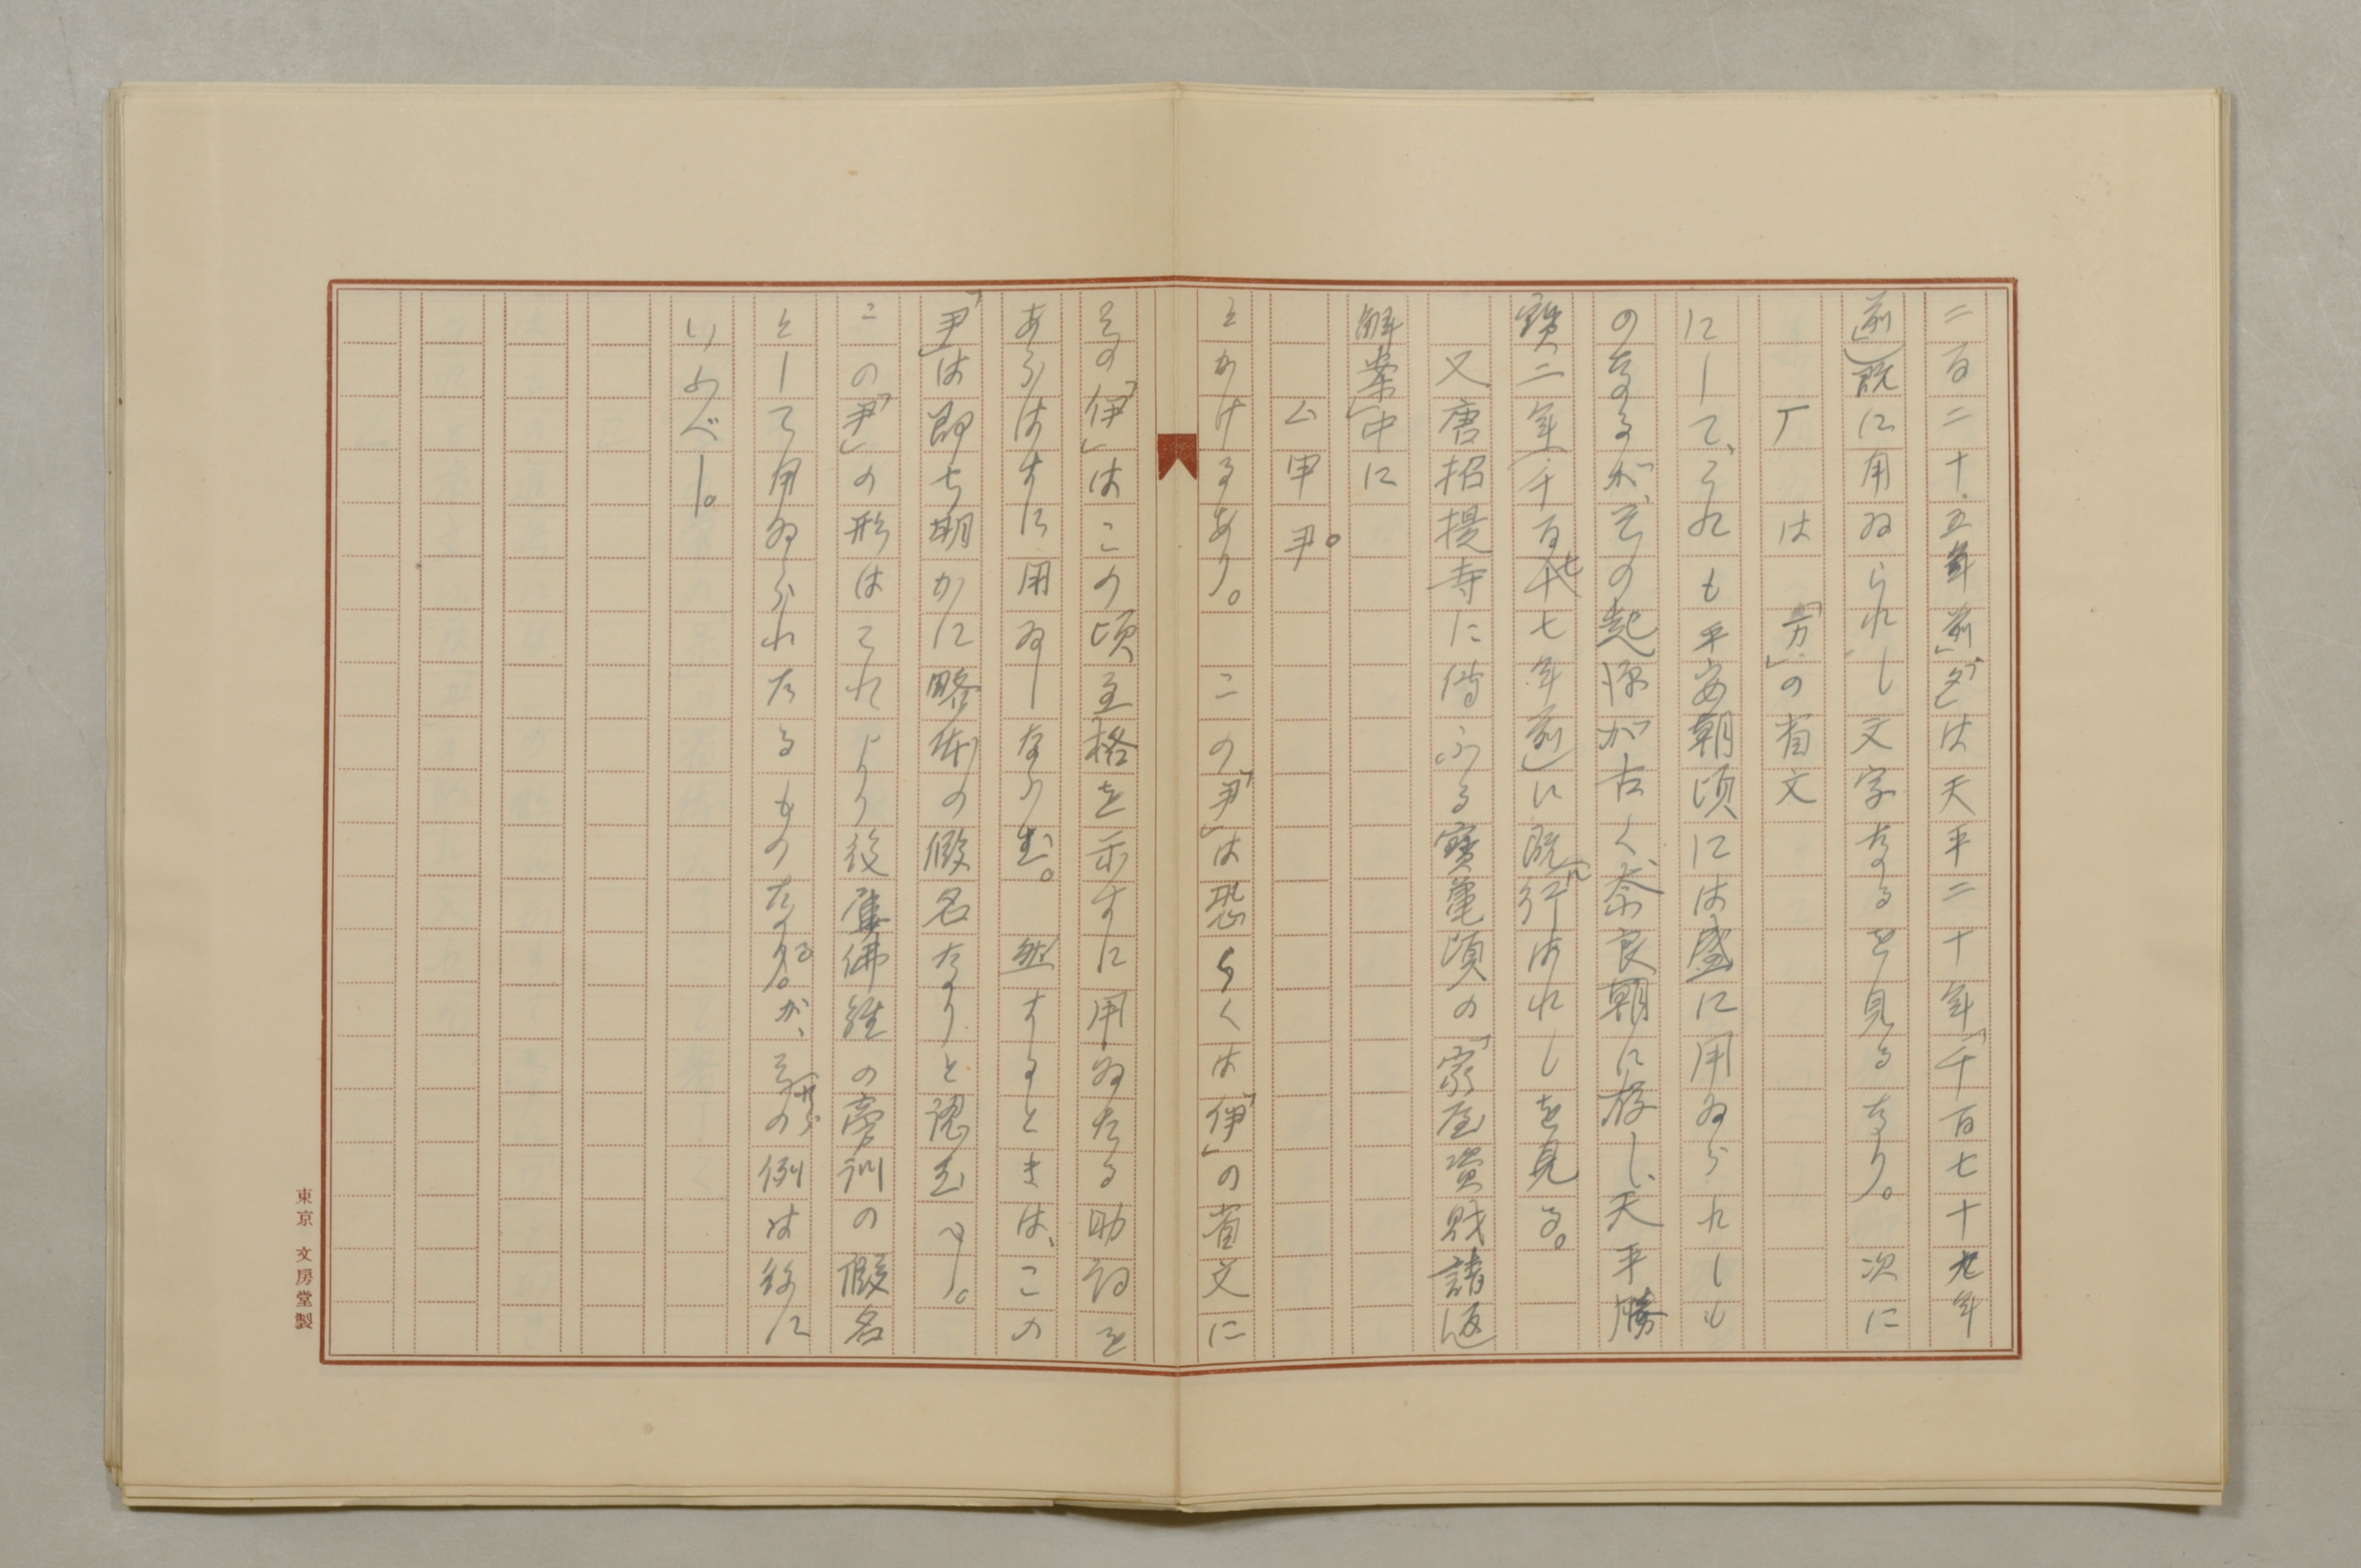 二百二十五年前」「タ」は天平二十年「千百七十九年
前」)既に用ゐられし文字なるを見るなり。次に
厂は「雁」の省文
にして、これも平安朝頃には盛に用ゐられしも
のなるが、その起源が古く、奈良朝に存し、天平勝
寶二年(千百七十七年前)に既に行はれしを見る。
又唐招提寺に傳ふる寶亀頃の「家屋資財請返
解案」中に
ム甲尹。
とかけるあり。この「尹」は恐らくは「伊」の省文に
その「伊」はこの頃主格を示すに用ゐたる助詞を
あらはすに用ゐしなり。然するときは、この
「尹」は即ち明かに略体の假名なりと認むべし。
この「尹」の形はこれより後、佛經の旁訓の假名
として用ゐられたるものなるが、その例は後に
いふべし。
東京 文房堂製